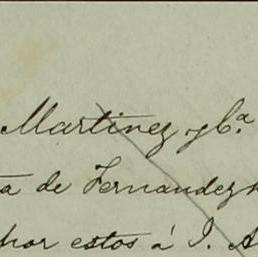 Martinez y Cª.
a de Fernandez
por estos á J. A